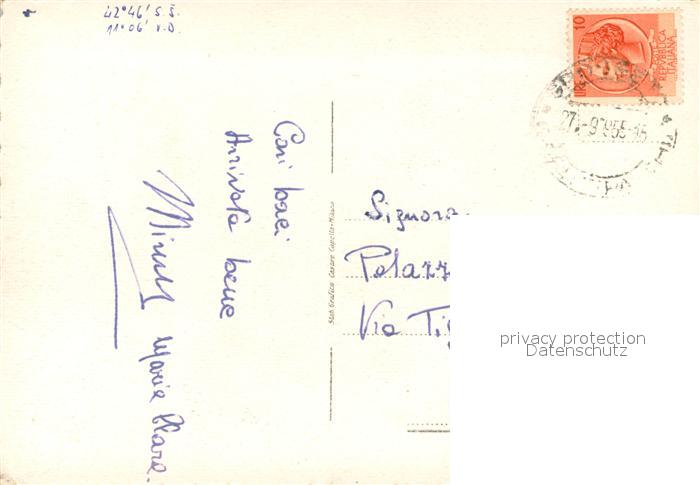 42°46' S.Š.
11°06' V.D.
10
LIRE
REPVBBLICA
ITALIANA
27-9 1955-15
Cari baci
Arrivata bene
Maria Clara.
Stab. Grafico Cesare Capello-Milano
Signora
Palazz
Via Ti
privacy protection
Datenschutz